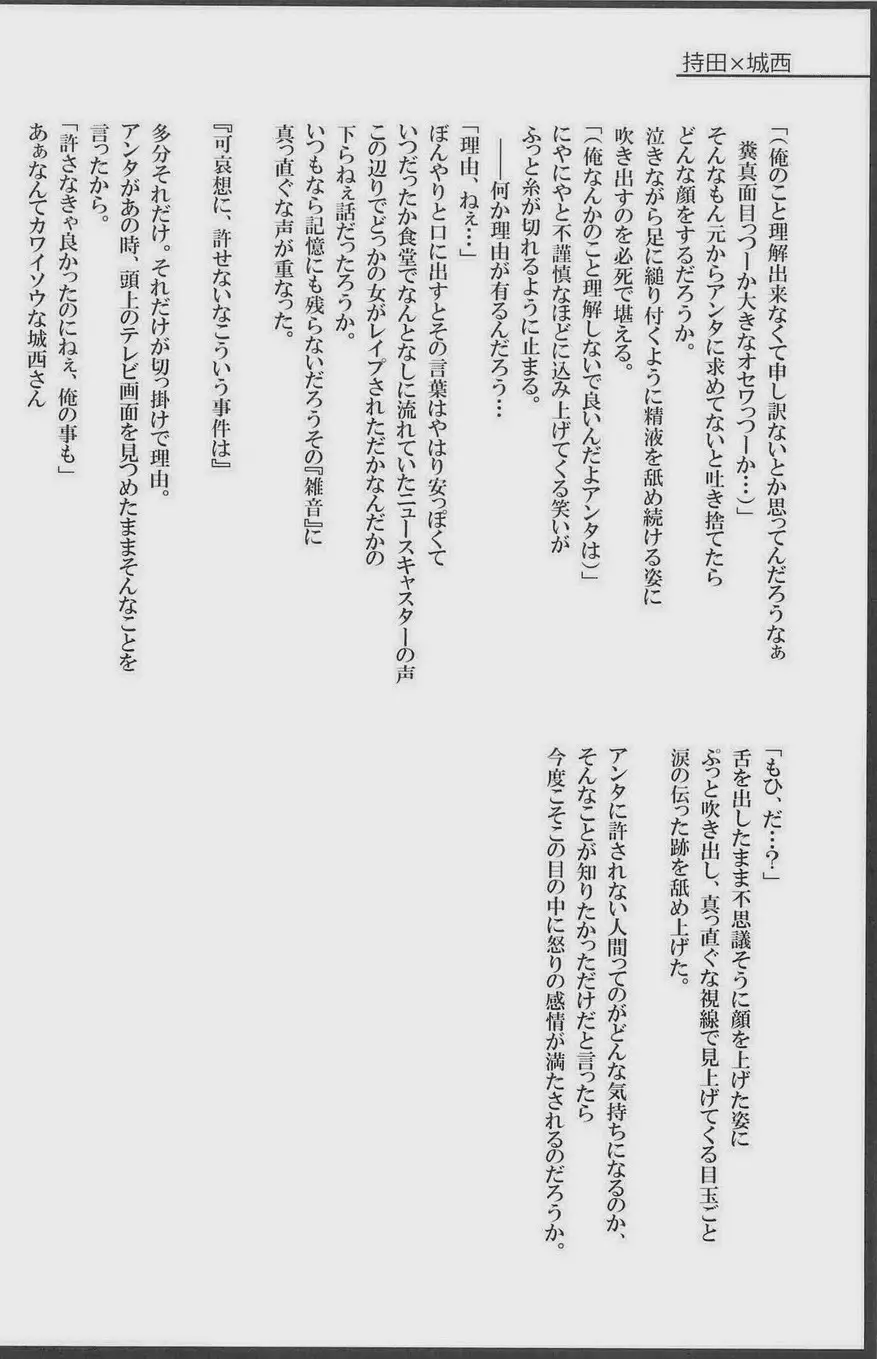 持田×城西
「(俺のこと理解出来なくて申し訳ないとか思ってんだろうなぁ
糞真面目っつーか大きなオセワっつーか…)」
そんなもん元からアンタに求めてないと吐き捨てたら
どんな顔をするだろうか。
泣きながら足に縋り付くように精液を舐め続ける姿に
吹き出すのを必死で堪える。
「(俺なんかのこと理解しないで良いんだよアンタは)」
にやにやと不謹慎なほどに込み上げてくる笑いが
ふっと糸が切れるように止まる。
――何か理由が有るんだろう…
「理由、ねぇ…」
ぼんやりと口に出すとその言葉はやはり安っぽくて
いつだったか食堂でなんとなしに流れていたニュースキャスターの声
この辺りでどっかの女がレイプされただかなんだかの
下らねぇ話だったろうか。
いつもなら記憶にも残らないだろうその『雑音』に
真っ直ぐな声が重なった。
『可哀想に、許せないなこういう事件は』
多分それだけ。それだけが切っ掛けで理由。
アンタがあの時、頭上のテレビ画面を見つめたままそんなことを
言ったから。
「許さなきゃ良かったのにねぇ、俺の事も」
あぁなんてカワイソウな城西さん
「もひ、だ…?」
舌を出したまま不思議そうに顔を上げた姿に
ぷっと吹き出し、真っ直ぐな視線で見上げてくる目玉ごと
涙の伝った跡を舐め上げた。
アンタに許されない人間ってのがどんな気持ちになるのか、
そんなことが知りたかっただけだと言ったら
今度こそこの目の中に怒りの感情が満たされるのだろうか。